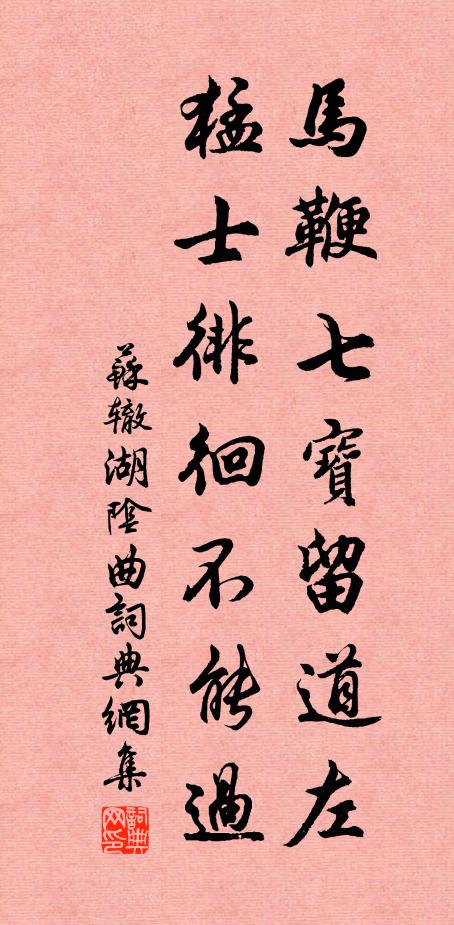 馬鞭七寶留道左
猛士徘徊不能過
蘇辙湖陰曲詞典網集
詞典网印